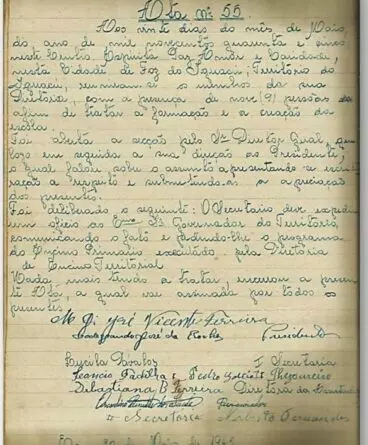 Ata nº 55
Aos vinte dias do mês de Maio,
do ano de mil novecentos quarenta e cinco
neste Centro Espirita Paz, Amor e Caridade,
nesta Cidade de Foz do Iguaçu, Territorio do
Iguaçu, reuniram-se os membros da sua
Diretoria, com a presença de nove (9) pessoas
afim de tratar a formação e a criação da
escola.
Foi aberta a secção pelo Sr Diretor Geral,
em seguida a sua direcção ao Presidente,
o qual falou sobre o assunto apresentando
a respeito e submetendo a apreciação
dos presentes.
Foi deliberado o seguinte: O Secretario deve
um oficio ao Exmo Sr Governador do Territorio,
comunicando o fato e pedindo-lhe o programa
do Ensino Primario executado pela Diretoria
de Ensino Territorial
Nada mais tendo a tratar, encerrou a
Ata, a qual vae assinada por todos os
presentes
José Vicente Ferreira
José da Rocha Presidente
Lucila Avalos 1ª Secretaria
Leoncio Padilha Pedro Thezoureiro
Sebastiana B Ferreira Diretora da
Secretario Norberto Fernandes